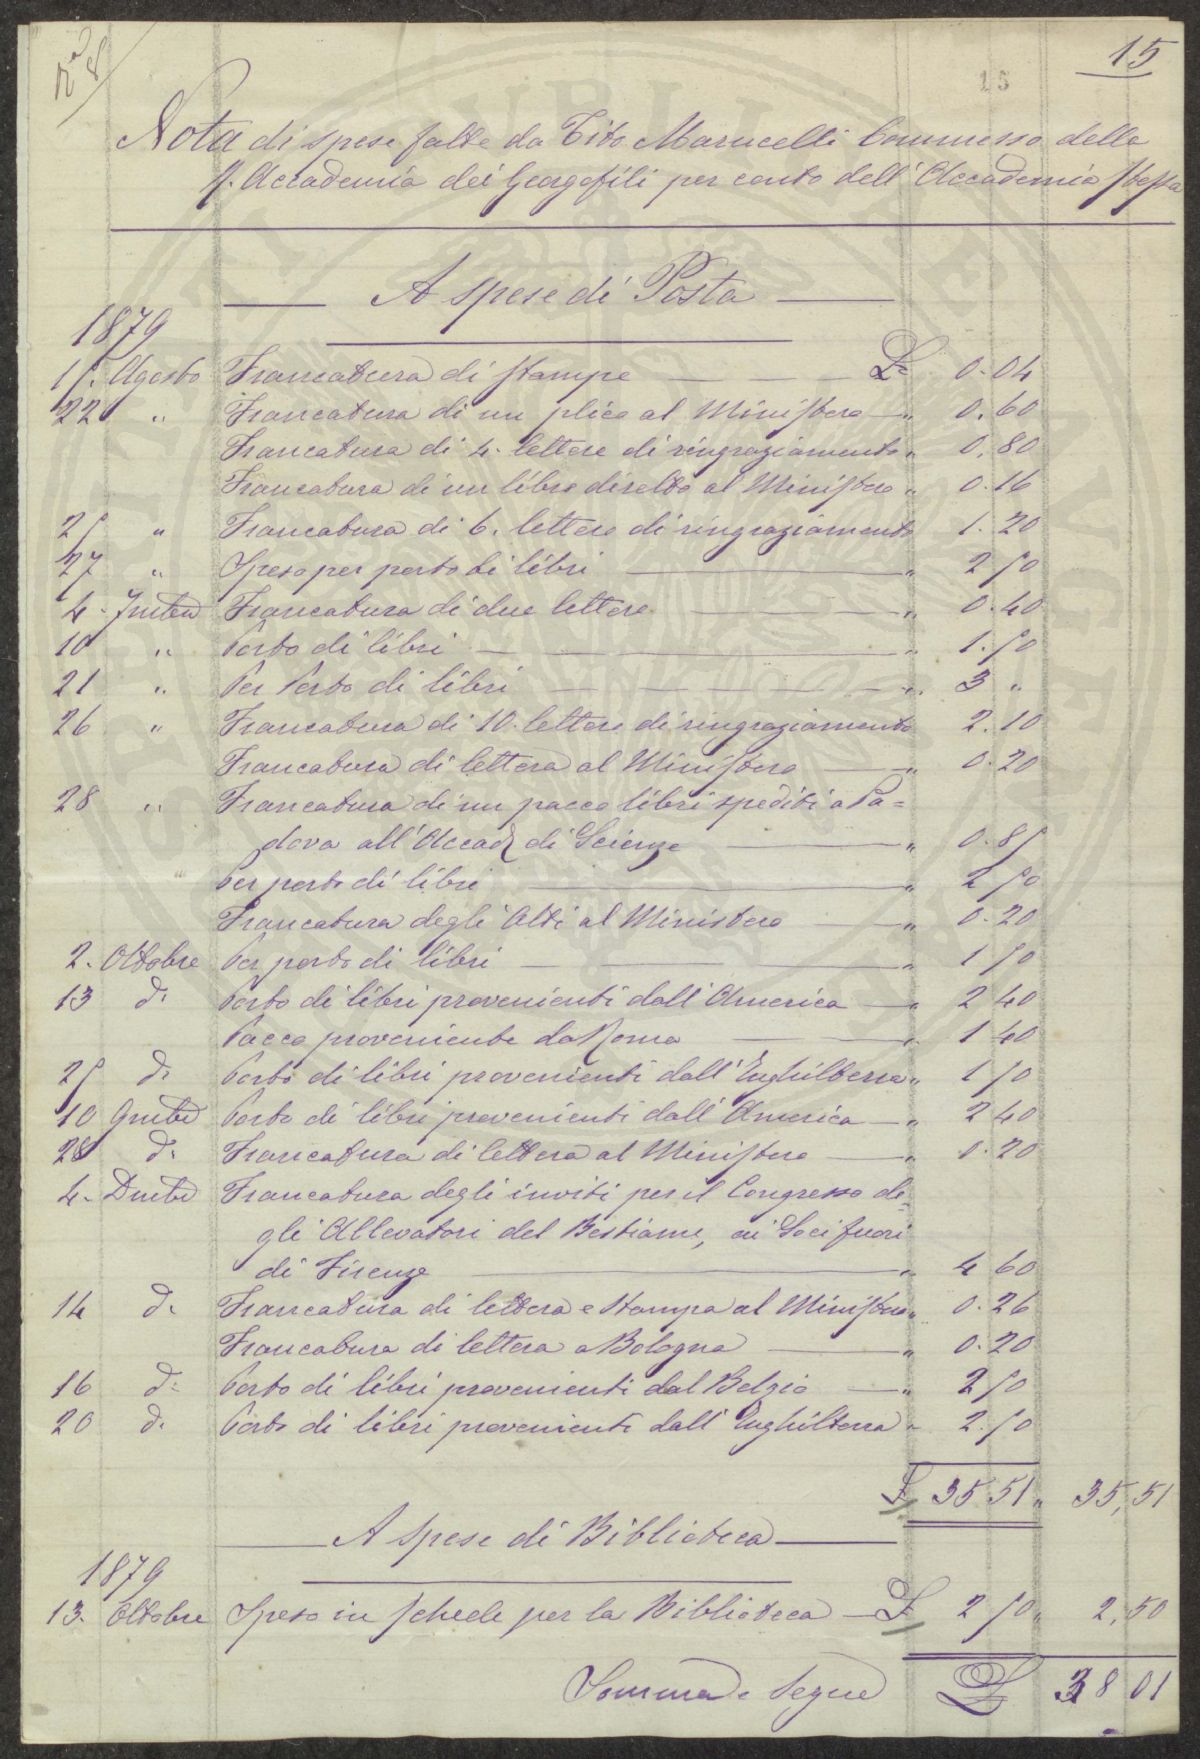 N.a 8
15
15
Nota di spese fatte da Tito Marucelli Commesso della
R. Accademia dei Georgofili per conto dell'Accademia stessa
A spese di Posta
1879
15. Agosto Francatura di stampe L. 0.04
22 " Francatura di un plico al Ministero " 0.60
Francatura di 4. lettere di ringraziamento " 0.80
Francatura di un libro diretto al Ministero " 0.16
25 " Francatura di 6. lettere di ringraziamento 1.20
27 " Speso per porto di libri " 2 50
4. 7mbre Francatura di due lettere " 0.40
10 " Porto di libri " 1.50
21 " Per Porto di libri " 3 "
26 " Francatura di 10. lettere di ringraziamento 2.10
Francatura di lettera al Ministero " 0.20
28 " Francatura di un pacco libri spediti a Pa=
dova all'Accad. di Scienze " 0.85
Per porto di libri " 2 50
Francatura degli Atti al Ministero " 0.20
2. Ottobre Per porto di libri " 1 50
13 d. Porto di libri provenienti dall'America " 2 40
Pacco proveniente da Roma " 1 40
25 d. Porto di libri provenienti dall'Inghilterra " 1 50
10 9mbre Porto di libri provenienti dall'America " 2 40
28 d. Francatura di lettera al Ministero " 0.20
4. Dmbre Francatura degli inviti per il Congresso de=
gli Allevatori del Bestiame, ai Soci fuori
di Firenze " 4 60
14 d. Francatura di lettera e stampa al Ministero " 0.26
Francatura di lettera a Bologna " 0.20
16 d. Porto di libri provenienti dal Belgio " 2 50
20 d. Porto di libri provenienti dall'Inghilterra " 2.50
L. 35 51 " 35,51
A spese di Biblioteca
1879
13. Ottobre Speso in schede per la Biblioteca L. 2 50 " 2,50
Somma e segue L. 38 01